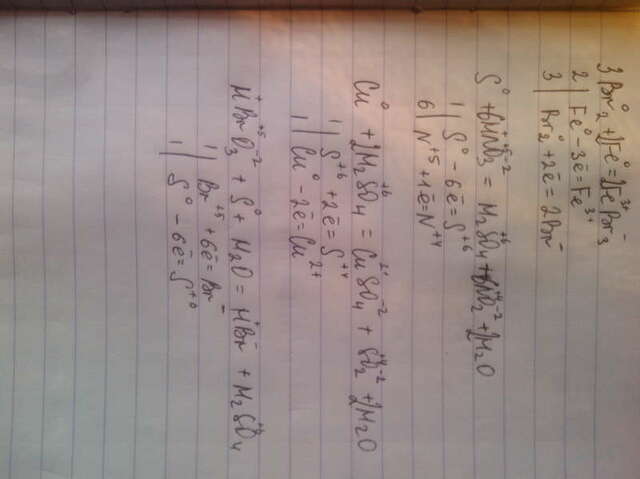 3Br₂⁰ + 2Fe⁰ = 2Fe³⁺Br₃⁻
2 | Fe⁰ - 3ē = Fe³⁺
3 | Br₂⁰ + 2ē = 2Br⁻
S⁰ + 6HN⁺⁵O₃⁻² = H₂S⁺⁶O₄ + 6N⁺⁴O₂⁻² + 2H₂O
1 | S⁰ - 6ē = S⁺⁶
6 | N⁺⁵ + 1ē = N⁺⁴
Cu⁰ + 2H₂S⁺⁶O₄ = Cu²⁺SO₄⁻² + S⁺⁴O₂⁻² + 2H₂O
1 | S⁺⁶ + 2ē = S⁺⁴
1 | Cu⁰ - 2ē = Cu²⁺
H⁺Br⁺⁵O₃⁻² + S⁰ + H₂O = H⁺Br⁻ + H₂S⁺⁶O₄
1 | Br⁺⁵ + 6ē = Br⁻
1 | S⁰ - 6ē = S⁺⁶